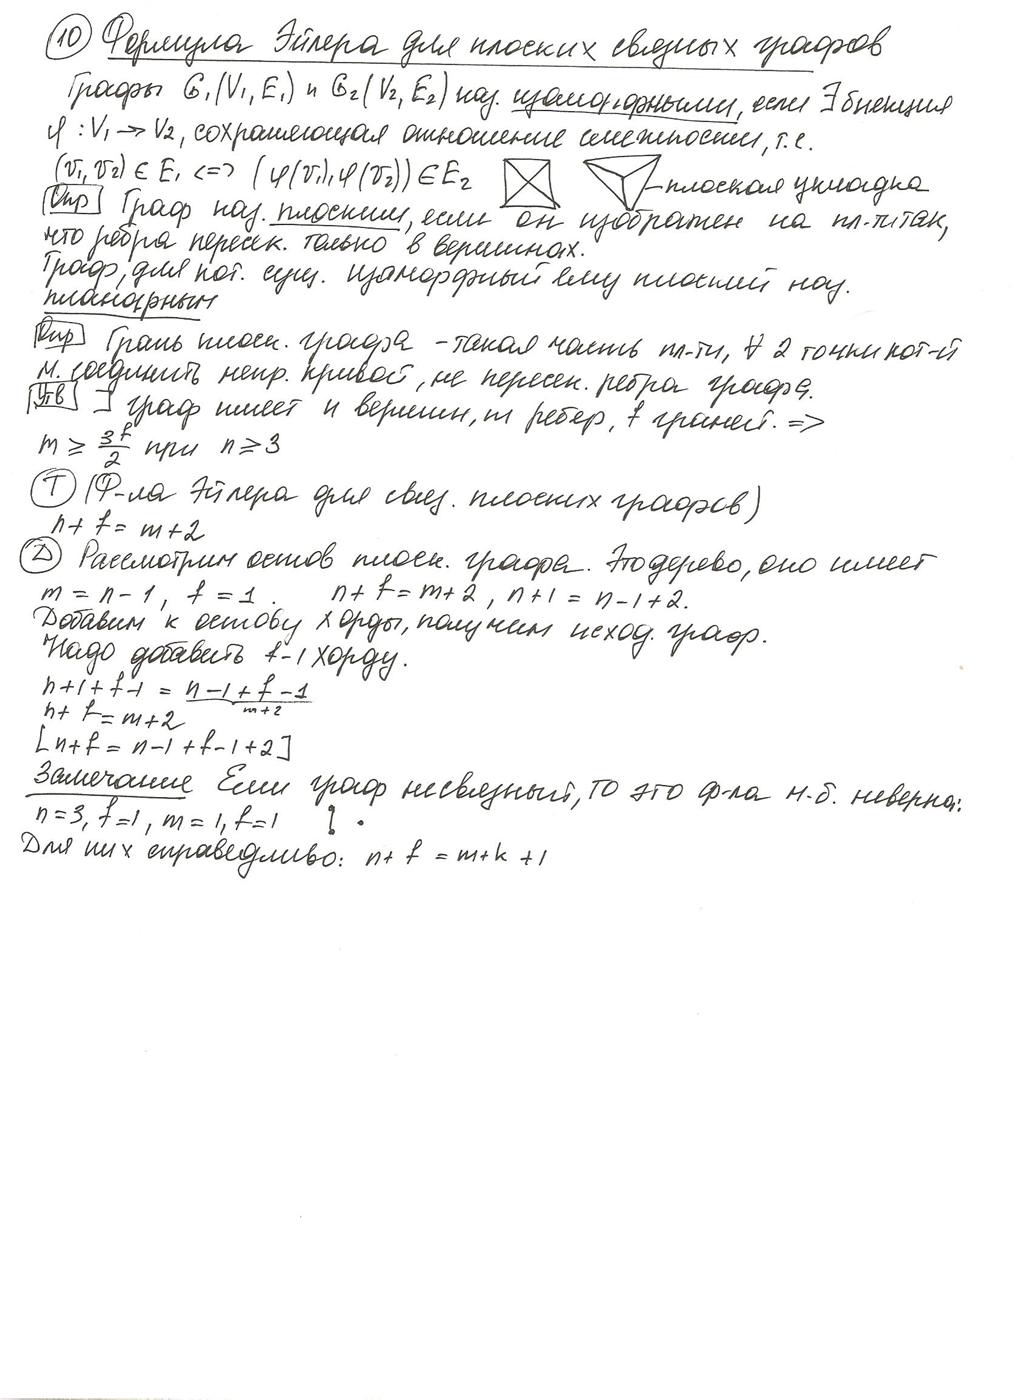 10 Формула Эйлера для плоских связных графов
Графы G₁(V₁,E₁) и G₂(V₂,E₂) наз. изоморфными, если ∃ биекция
φ : V₁ → V₂, сохраняющая отношение смежности, т.е.
(v₁,v₂) ∈ E₁ <=> (φ(v₁),φ(v₂)) ∈ E₂ - плоская укладка
Опр Граф наз. плоским, если он изображен на пл-ти так,
что ребра пересек. только в вершинах.
Граф, для кот. сущ. изоморфный ему плоский наз.
планарным
Опр Грань плоск. графа - такая часть пл-ти, ∀ 2 точки кот-й
м. соединить непр. кривой, не пересек. ребра графа.
Утв ] граф имеет n вершин, m ребер, f граней. =>
m ≥ 3f/2 при n ≥ 3
Т (Ф-ла Эйлера для связ. плоских графов)
n + f = m + 2
Д Рассмотрим остов плоск. графа. Это дерево, оно имеет
m = n - 1, f = 1. n + f = m + 2, n + 1 = n - 1 + 2.
Добавим к остову хорды, получим исход. граф.
Надо добавить f - 1 хорду.
n + 1 + f - 1 = n - 1 + f - 1
m + 2
n + f = m + 2
[n + f = n - 1 + f - 1 + 2]
Замечание Если граф несвязный, то это ф-ла м.б. неверна:
n = 3, f = 1, m = 1, f = 1
Для них справедливо: n + f = m + k + 1